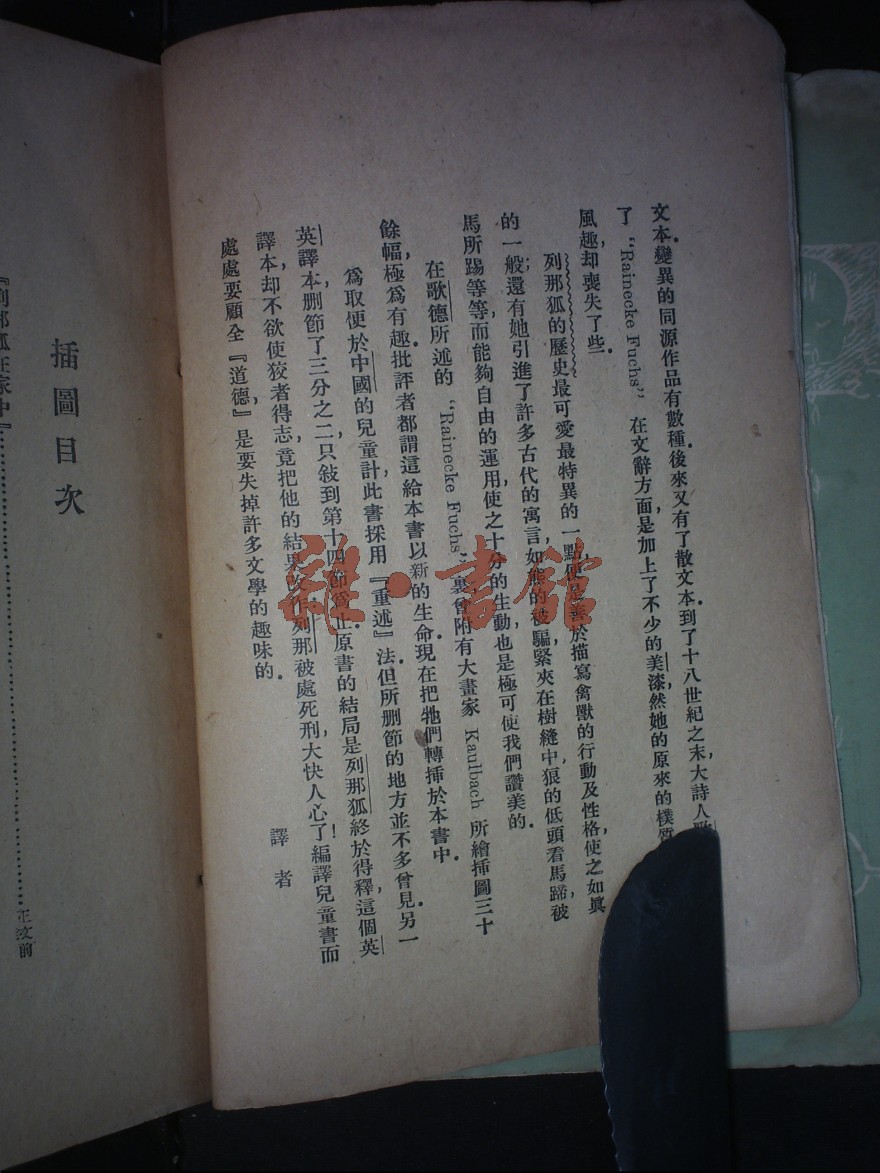 文本。變異的同源作品有數種。後來又有了散文本。到了十八世紀之末，大詩人
了 “Rainecke Fuchs” 在文辭方面是加上了不少的美漆，然她的原來的樸質
風趣却喪失了些。
列那狐的歷史最可愛最特異的一點，便是善於描寫禽獸的行動及性格，使之如真
的一般；還有她引進了許多古代的寓言，如熊的被騙緊夾在樹縫中，狼的低頭看馬蹄，被
馬所踢等等，而能夠自由的運用，使之十分的生動，也是極可使我們讚美的。
在歌德所述的 “Rainecke Fuchs” 裏，會附有大畫家 Kaulbach 所繪插圖三十
餘幅，極爲有趣。批評者都謂這給本書以新的生命。現在把牠們轉插於本書中。
爲取便於中國的兒童計，此書採用『重述』法。但所刪節的地方並不多。曾見另一
英譯本，刪節了三分之二，只敍到第十四節爲止。原書的結局是列那狐終於得釋，這個英
譯本却不欲使狡者得志，竟把他的結果改作列那被處死刑，大快人心了！編譯兒童書而
處處要顧全『道德』，是要失掉許多文學的趣味的。
譯者
插圖目次
『列那狐在家中』…………正文前
雜·書館